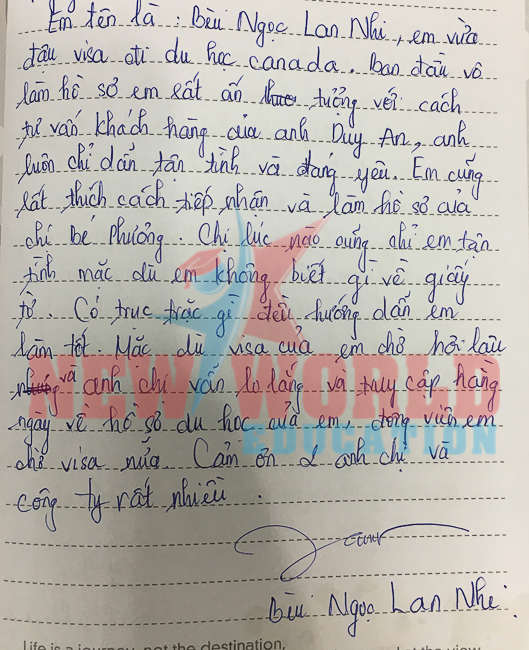 Em tên là : Bùi Ngọc Lan Nhi, em vừa
đậu visa đi du học canada. ban đầu vô
làm hồ sơ em rất ấn tượng với cách
tư vấn khách hàng của anh Duy An, anh
luôn chỉ dẫn tận tình và đáng yêu. Em cũng
rất thích cách tiếp nhận và làm hồ sơ của
chị bé Phương. Chị lúc nào cũng chỉ em tận
tình mặc dù em không biết gì về giấy
tờ. Có trục trặc gì đều hướng dẫn em
làm tốt. Mặc dù visa của em chờ hơi lâu
và anh chị vẫn lo lắng và truy cập hằng
ngày về hồ sơ du học của em, động viên em
chờ visa nữa. Cảm ơn 2 anh chị và
công ty rất nhiều.
NEW WORLD
EDUCATION
Bùi Ngọc Lan Nhi.
Life is a journey, not the destination,